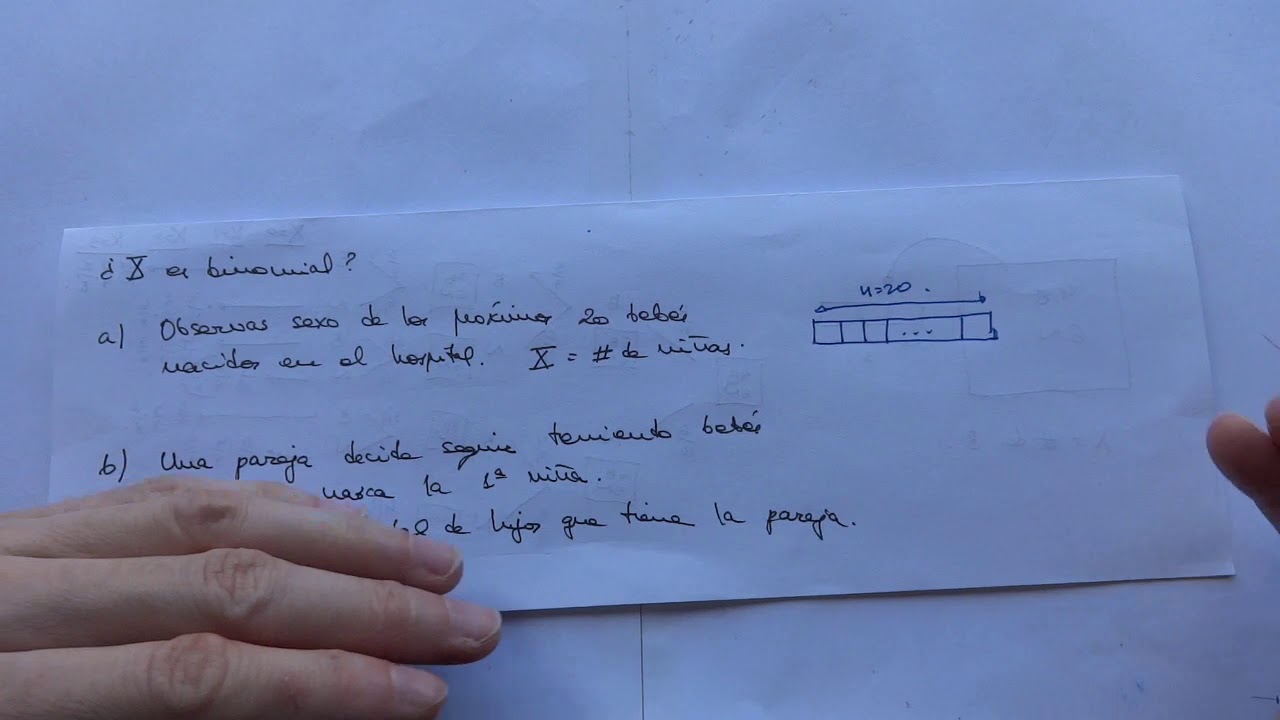 ¿X es binomial?
a) Observas sexo de los próximos 20 bebés
nacidos en el hospital. X = # de niñas.
n=20.
...
b) Una pareja decide seguir teniendo bebés
nazca la 1ª niña.
de hijos que tiene la pareja.